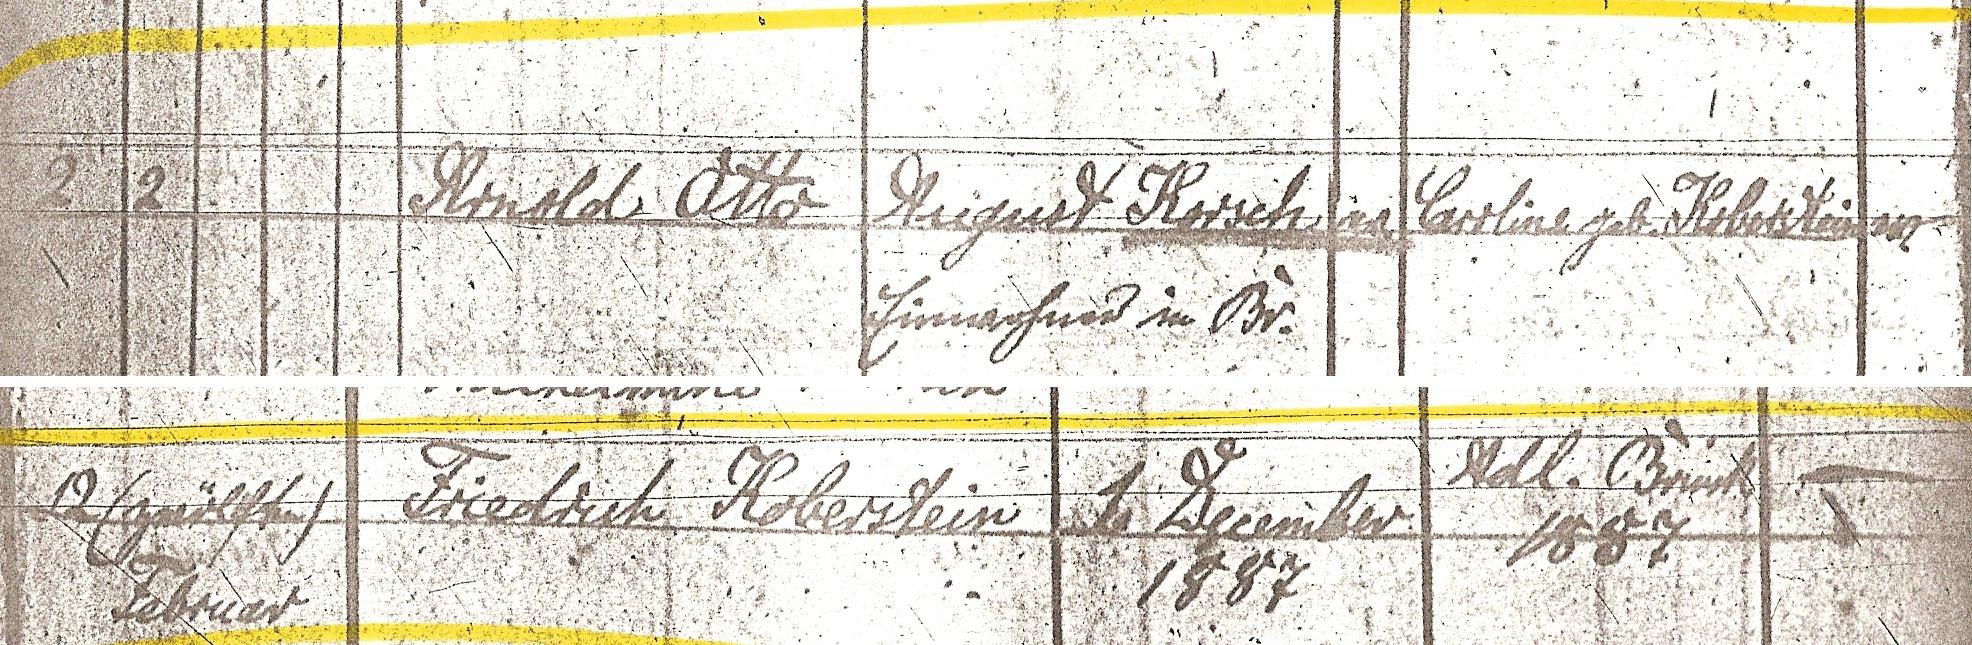 2 2 Arnold Otto August Korsch ev. Caroline geb. Koberstein ev.
Einwohner in Br.
12 (zwölften) Friedrich Koberstein December Adl. Briesk
Februar 1887 1887